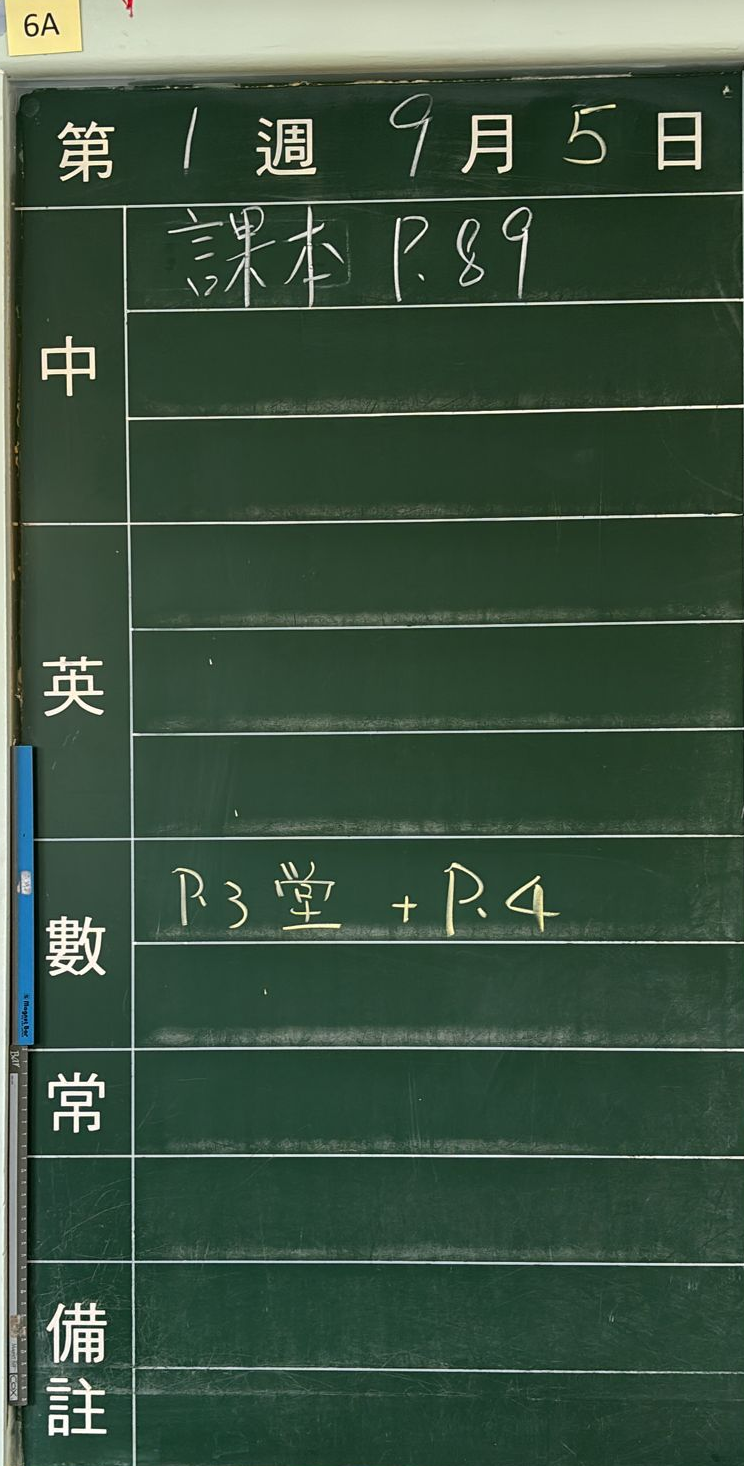 6A
第 1 週 9 月 5 日
中
課本 P.89
英
數
P.3 堂 + P.4
常
備
註